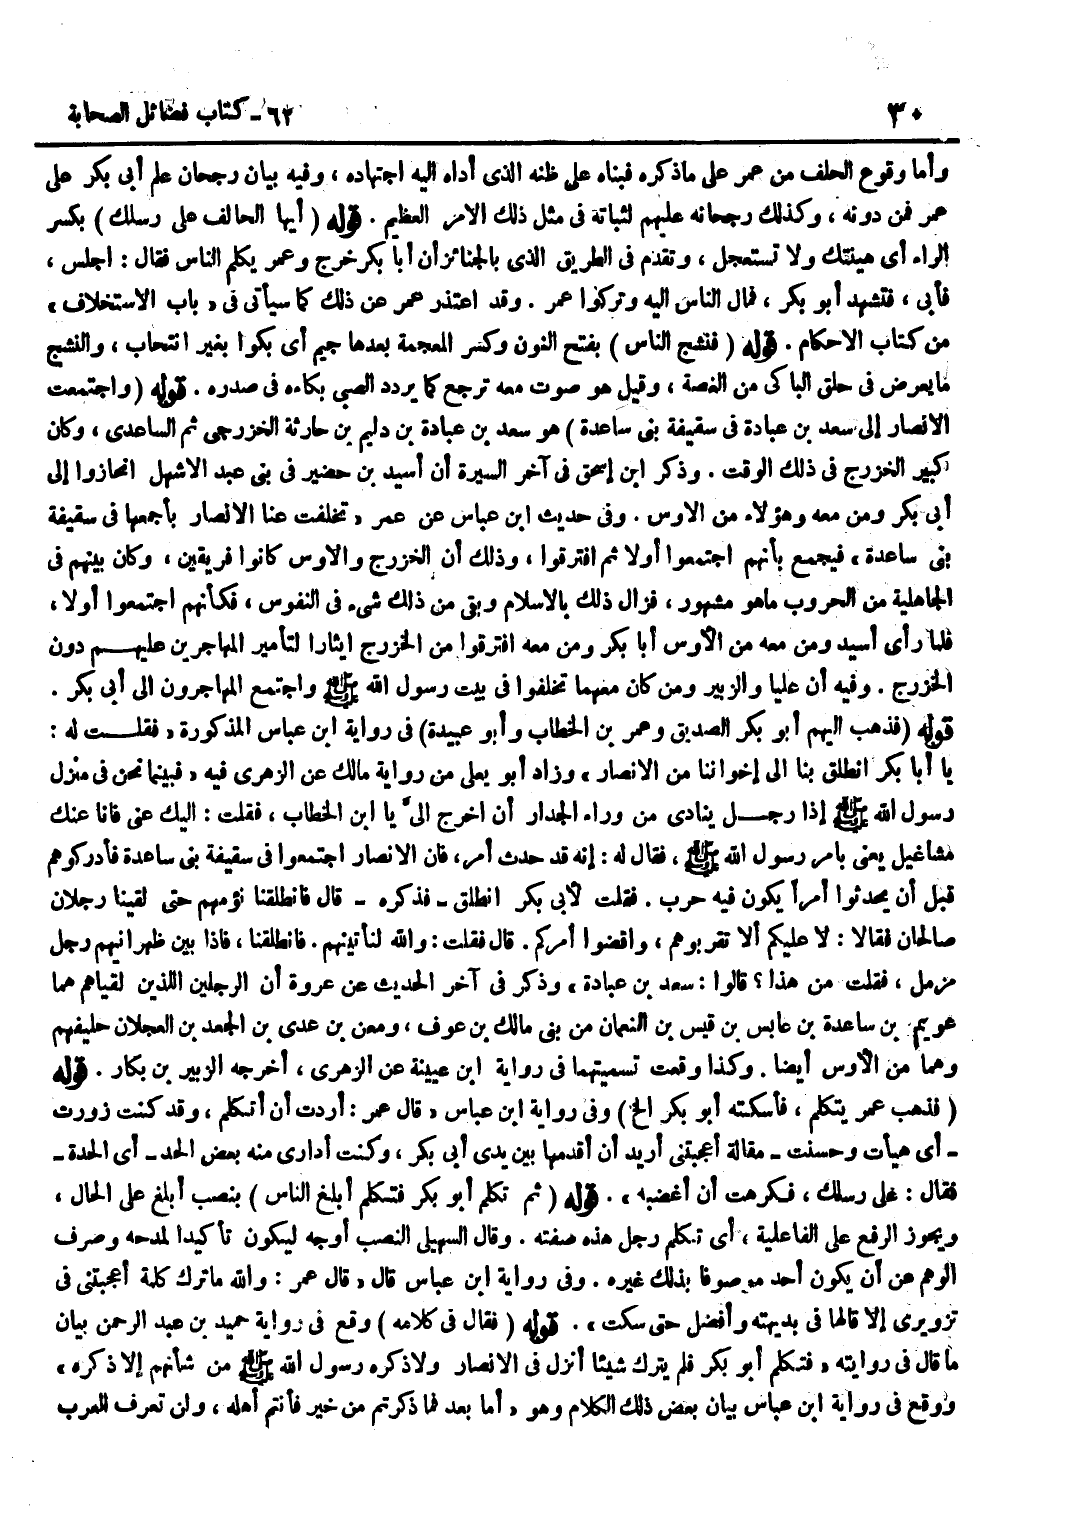 ٣٠
٦٢ - كتاب فضائل الصحابة
وأما وقوع الحلف من عمر على ماذكره فبناه على ظنه الذى أداه اليه اجتهاده ، وفيه بيان رجحان علم أبى بكر على
عمر فمن دونه ، وكذلك رجحانه عليهم لثباته فى مثل ذلك الامر العظيم . قوله ( أيها الحالف على رسلك ) بكسر
الراء أى هينتك ولا تستعجل ، وتقدم فى الطريق الذى بالجنائز أن أبا بكر خرج وعمر يكلم الناس فقال : اجلس ،
فأبى ، فتشهد أبو بكر ، فمال الناس اليه وتركوا عمر . وقد اعتذر عمر عن ذلك كما سيأتى فى « باب الاستخلاف »
من كتاب الاحكام . قوله ( فنشج الناس ) بفتح النون وكسر المعجمة بعدها جيم أى بكوا بغير انتحاب ، والنشج
مايعرض فى حلق الباكى من الغصة ، وقيل هو صوت معه ترجع كما يردد الصبى بكاءه فى صدره . قوله ( واجتمعت
الانصار إلى سعد بن عبادة فى سقيفة بنى ساعدة ) هو سعد بن عبادة بن دليم بن حارثة الخزرجى ثم الساعدى ، وكان
كبير الخزرج فى ذلك الوقت . وذكر ابن إسحق فى آخر السيرة أن أسيد بن حضير فى بنى عبد الاشهل انحازوا إلى
أبى بكر ومن معه وهؤلاء من الاوس . وفى حديث ابن عباس عن عمر « تخلفت عنا الانصار بأجمعها فى سقيفة
بنى ساعدة » فيجمع بأنهم اجتمعوا أولا ثم افترقوا ، وذلك أن الخزرج والاوس كانوا فريقين ، وكان بينهم فى
الجاهلية من الحروب ماهو مشهور ، فزال ذلك بالاسلام وبقى من ذلك شىء فى النفوس ، فكأنهم اجتمعوا أولا ،
فلما رأى أسيد ومن معه من الأوس أبا بكر ومن معه افترقوا من الخزرج إيثارا لتأمير المهاجرين عليهم دون
الخزرج . وفيه أن عليا والزبير ومن كان معهما تخلفوا فى بيت رسول الله ﷺ واجتمع المهاجرون الى أبى بكر .
قوله (فذهب اليهم أبو بكر الصديق وعمر بن الخطاب وأبو عبيدة) فى رواية ابن عباس المذكورة « فقلت له :
يا أبا بكر انطلق بنا الى إخواننا من الانصار » وزاد أبو يعلى من رواية مالك عن الزهرى فيه « فبينما نحن فى منزل
رسول الله ﷺ إذا رجل ينادى من وراء الجدار أن اخرج الىّ يا ابن الخطاب ، فقلت : اليك عنى فانا عنك
مشاغيل يعنى بامر رسول الله ﷺ ، فقال له : إنه قد حدث أمر، فان الانصار اجتمعوا فى سقيفة بنى ساعدة فأدركوهم
قبل أن يحدثوا أمراً يكون فيه حرب . فقلت لأبى بكر انطلق - فذكره - قال فانطلقنا نؤمهم حتى لقينا رجلان
صالحان فقالا : لا عليكم ألا تقربوهم ، واقضوا أمركم . قال فقلت : والله لنأتينهم . فانطلقنا ، فاذا بين ظهرانيهم رجل
مزمل ، فقلت من هذا ؟ قالوا : سعد بن عبادة » وذكر فى آخر الحديث عن عروة أن الرجلين اللذين لقياهم هما
عويم بن ساعدة بن عابس بن قيس بن النعمان من بنى مالك بن عوف ، ومعن بن عدى بن الجعد بن العجلان حليفهم
وهما من الأوس أيضا . وكذا وقعت تسميتهما فى رواية ابن عيينة عن الزهرى ، أخرجه الزبير بن بكار . قوله
( فذهب عمر يتكلم ، فأسكته أبو بكر الخ ) وفى رواية ابن عباس « قال عمر : أردت أن أتكلم ، وقد كنت زورت
- أى هيأت وحسنت - مقالة أعجبتنى أريد أن أقدمها بين يدى أبى بكر ، وكنت أدارى منه بعض الحد - أى الحدة -
فقال : على رسلك ، فكرهت أن أغضبه » . قوله ( ثم تكلم أبو بكر فتكلم أبلغ الناس ) بنصب أبلغ على الحال ،
ويجوز الرفع على الفاعلية ، أى تكلم رجل هذه صفته . وقال السهيلى النصب أوجه ليكون تأكيدا لمدحه وصرف
الوهم عن أن يكون أحد موصوفا بذلك غيره . وفى رواية ابن عباس قال « قال عمر : والله ماترك كلمة أعجبتنى فى
تزويرى إلا قالها فى بديهته وأفضل حتى سكت » . قوله ( فقال فى كلامه ) وقع فى رواية حميد بن عبد الرحمن بيان
ما قال فى روايته « فتكلم أبو بكر فلم يترك شيئا أنزل فى الانصار ولاذكره رسول الله ﷺ من شأنهم إلا ذكره »
ووقع فى رواية ابن عباس بيان بعض ذلك الكلام وهو « أما بعد فما ذكرتم من خير فأنتم أهله ، ولن تعرف العرب